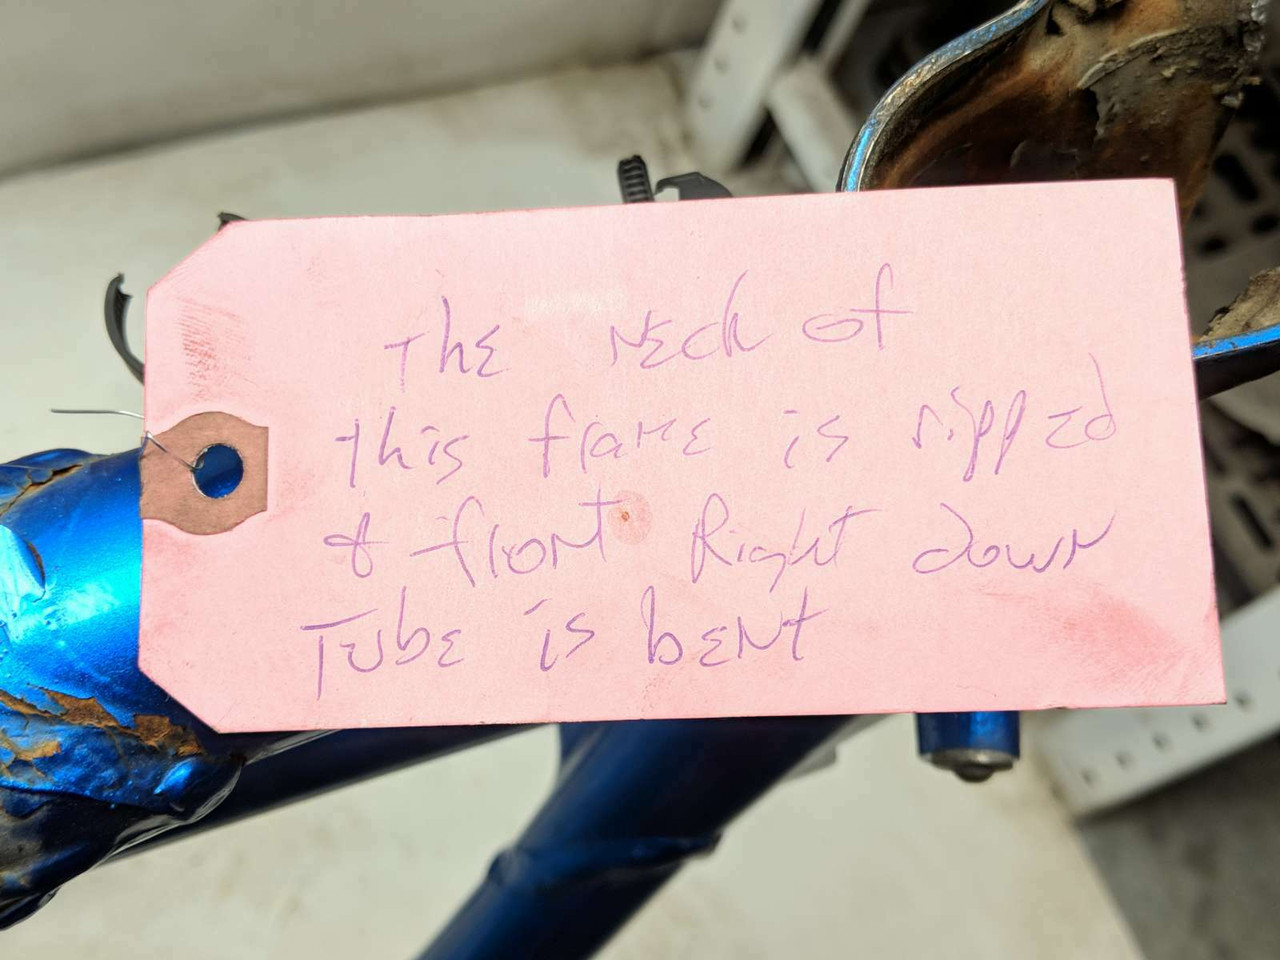 The neck of
this frame is ripped
& front Right down
Tube is bent